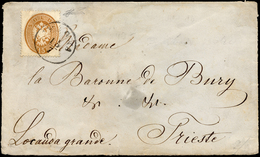 Madame
la Baronne de Bury
&. &.
Trieste
Locanda grande.